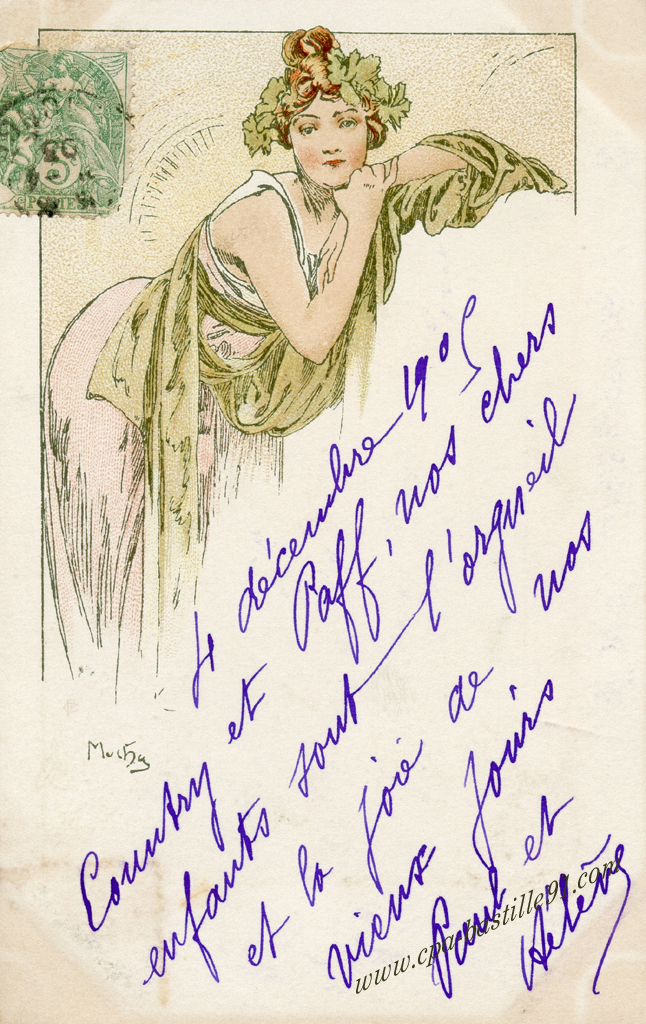 5
POSTES
4 décembre 1905
Country et Paff, nos chers
enfants sont l'orgueil
et la joie de nos
vieux jours
Paul et
Hélène
Mucha
www.cpa-bastille91.com